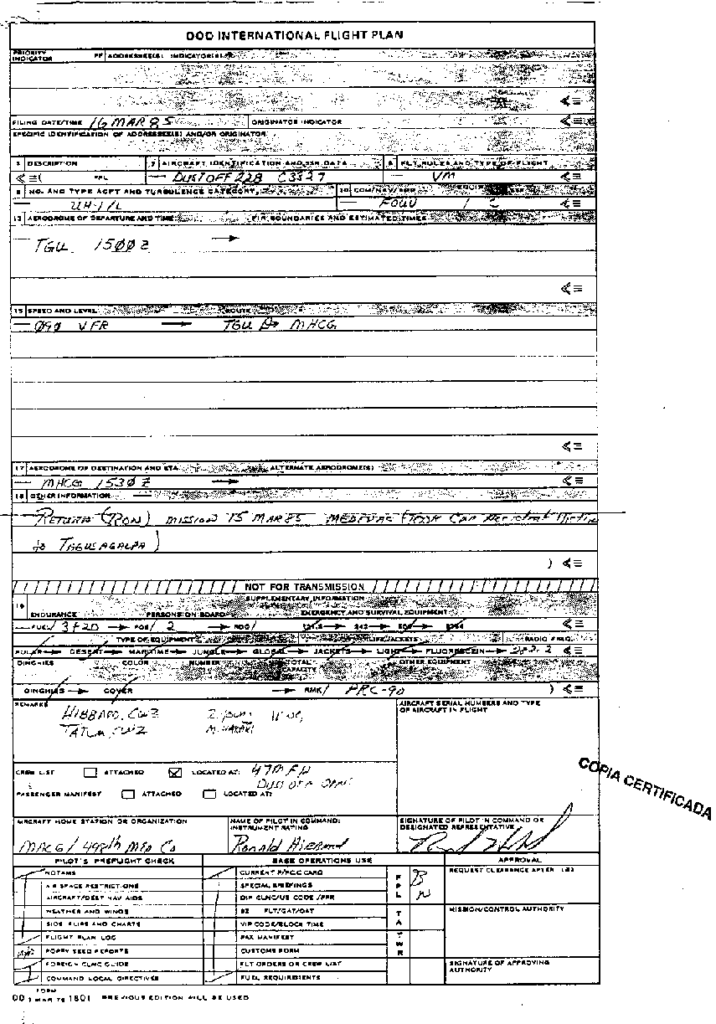 DOD INTERNATIONAL FLIGHT PLAN
PRIORITY INDICATOR
FF ADDRESSEE(S) INDICATOR(S)
≪≡
FILING DATE/TIME 16 MAR 85 ORIGINATOR INDICATOR ≪≡
SPECIFIC IDENTIFICATION OF ADDRESSEE(S) AND/OR ORIGINATOR
3 DESCRIPTION 7 AIRCRAFT IDENTIFICATION AND SSR DATA 8 FLT RULES AND TYPE OF FLIGHT
≪≡( FPL — DUSTOFF 228 C3327 — VM ≪≡
9 NO. AND TYPE ACFT AND TURBULENCE CATEGORY 10 COM/NAV/APP EQUIP
— UH-1/L — FOUV / C ≪≡
13 AERODROME OF DEPARTURE AND TIME FIR BOUNDARIES AND ESTIMATED TIMES
— TGU 15ØØ Z →
≪≡
15 SPEED AND LEVEL ROUTE
— Ø9Ø VFR → TGU MHCG
≪≡
17 AERODROME OF DESTINATION AND ETA ALTERNATE AERODROME(S)
— MHCG 153Ø Z → ≪≡
18 OTHER INFORMATION —
RETURN (RON) MISSION 15 MAR 85 MEDEVAC (TOOK CAR Accident Victim
to TAGUSAGALPA)
) ≪≡
NOT FOR TRANSMISSION
SUPPLEMENTARY INFORMATION
19
ENDURANCE PERSONS ON BOARD EMERGENCY AND SURVIVAL EQUIPMENT
— FUEL/ 3+20 → POB/ 2 → RDO/ → 121.5 → 243 →
TYPE OF EQUIPMENT LIFEJACKETS RADIO FREQ.
POLAR → DESERT → MARITIME → JUNGLE → GLOBAL → JACKETS → LIGHT → FLUORESCEIN → 282.2 ≪≡
DINGHIES COLOR NUMBER TOTAL CAPACITY OTHER EQUIPMENT
DINGHIES → COVER → RMK/ PRC-90 ) ≪≡
REMARKS
AIRCRAFT SERIAL NUMBERS AND TYPE OF AIRCRAFT IN FLIGHT
HIBBARD, CW2
TATUM, CW2
CREW LIST ☐ ATTACHED ☒ LOCATED AT: 47TH F/H
DUSTOFF OPNS
PASSENGER MANIFEST ☐ ATTACHED ☐ LOCATED AT:
COPIA CERTIFICADA
AIRCRAFT HOME STATION OR ORGANIZATION
NAME OF PILOT IN COMMAND: INSTRUMENT RATING
SIGNATURE OF PILOT IN COMMAND OR DESIGNATED REPRESENTATIVE
MHCG / 498th Med Co
Ronald Hibbard
PILOT'S PREFLIGHT CHECK BASE OPERATIONS USE APPROVAL
NOTAMS CURRENT P/HCC CARD REQUEST CLEARANCE AFTER
AIR SPACE RESTRICTIONS SPECIAL BRIEFINGS
AIRCRAFT/DEST NAV AIDS DIP CLNC/US CODE/PPR
WEATHER AND WINDS FLT/GAT/OAT MISSION/CONTROL AUTHORITY
SIDS, FLIPS AND CHARTS VIP CODE/BLOCK TIME
FLIGHT PLAN LOG PAX MANIFEST
POPPY SEED REPORTS CUSTOMS FORM
FOREIGN CLNC GUIDE FLT ORDERS OR CREW LIST SIGNATURE OF APPROVING AUTHORITY
COMMAND LOCAL DIRECTIVES FUEL REQUIREMENTS
DD FORM 1 MAR 78 1801 PREVIOUS EDITION WILL BE USED